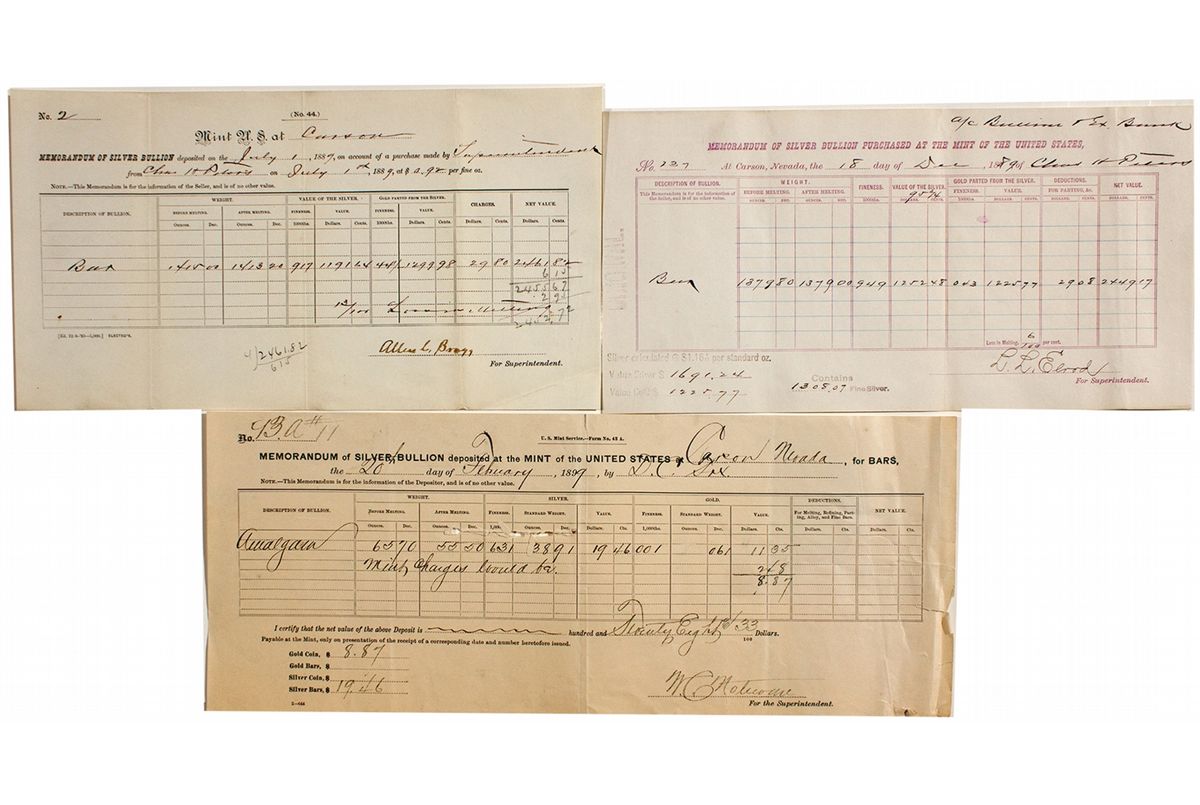 No. 2
(No. 44.)
Mint U. S. at Carson
MEMORANDUM OF SILVER BULLION deposited on the July 1, 1889, on account of a purchase made by Superintendent
from Chas H Peters on July 1st 1889, at $ 0.92 per fine oz.
NOTE.—This Memorandum is for the information of the Seller, and is of no other value.
DESCRIPTION OF BULLION. WEIGHT. VALUE OF THE SILVER. GOLD PARTED FROM THE SILVER. CHARGES. NET VALUE.
BEFORE MELTING. AFTER MELTING. FINENESS. VALUE. FINENESS. VALUE.
Ounces. Dec. Ounces. Dec. 1000ths. Dollars. Cents. 1000ths. Dollars. Cents. Dollars. Cents. Dollars. Cents.
Bar 1415 00 1413 20 917 1191 64 44½ 1299 98 29 80 2461 82
6 15
2455 67
2 95
2452 72
Loss in Melting
2461.82
615
Allen L. Bragg
For Superintendent.
a/c Bullion & Ex. Bank
MEMORANDUM OF SILVER BULLION PURCHASED AT THE MINT OF THE UNITED STATES,
No. 127 At Carson, Nevada, the 18 day of Dec, 1889 of Chas H Peters
DESCRIPTION OF BULLION. WEIGHT. FINENESS. VALUE OF THE SILVER. GOLD PARTED FROM THE SILVER. DEDUCTIONS. NET VALUE.
This Memorandum is for the information of the Seller, and is of no other value.
BEFORE MELTING. AFTER MELTING. 95¾ FINENESS. VALUE. FOR PARTING, &C.
OUNCES. DEC. OUNCES. DEC. 1000THS. DOLLARS. CENTS. 1000THS. DOLLARS. CENTS. DOLLARS. CENTS. DOLLARS. CENTS.
Bar 1379 80 1379 00 949 1252 48 043 1225 77 29 08 2449 17
Loss in Melting, 6/100 per cent.
Silver calculated @ $1.16¼ per standard oz.
Value Silver $ 1691.24
Value Gold $ 1225.77
Contains
1308.07 Fine Silver.
L. L. Elrod
For Superintendent.
No. 93.A #11
U. S. Mint Service.—Form No. 43 A.
MEMORANDUM of SILVER BULLION deposited at the MINT of the UNITED STATES at Carson Nevada, for BARS,
the 20 day of February, 1899, by D. C. Fox.
NOTE.—This Memorandum is for the information of the Depositor, and is of no other value.
DESCRIPTION OF BULLION. WEIGHT. SILVER. GOLD. DEDUCTIONS. NET VALUE.
BEFORE MELTING. AFTER MELTING. FINENESS. STANDARD WEIGHT. VALUE. FINENESS. STANDARD WEIGHT. VALUE. For Melting, Refining, Parting, Alloy, and Fine Bars.
Ounces. Dec. Ounces. Dec. Ounces. Dec. Dollars. Cts. 1,000ths. Ounces. Dec. Dollars. Cts. Dollars. Cts. Dollars. Cts.
Amalgam 65 70 55 50 631 38 91 19 46 001 061 11 35
Mint Charges would be 2 48
8.87
I certify that the net value of the above Deposit is hundred and Twenty Eight & 33/100 Dollars.
Payable at the Mint, only on presentation of the receipt of a corresponding date and number heretofore issued.
Gold Coin, $ 8.87
Gold Bars, $
Silver Coin, $
Silver Bars, $ 19.46
2—444
For the Superintendent.